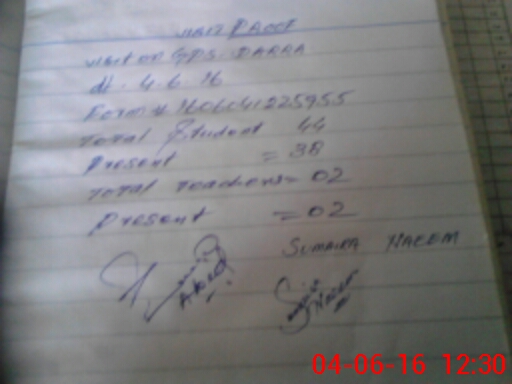 VISIT PROOF
VISIT ON GPS. DARRA
dt. 4.6.16
Form # 1606041225955
TOTAL Student 44
Present = 38
TOTAL Teachers = 02
Present = 02
SUMAIRA NAEEM
04-06-16 12:30